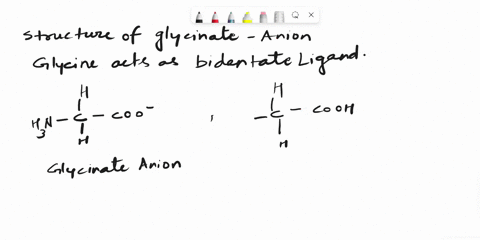 structure of glycinate - Anion
Glycine acts as bidentate Ligand.
H H
H3N - C - COO- , - C - COOH
H H
Glycinate Anion